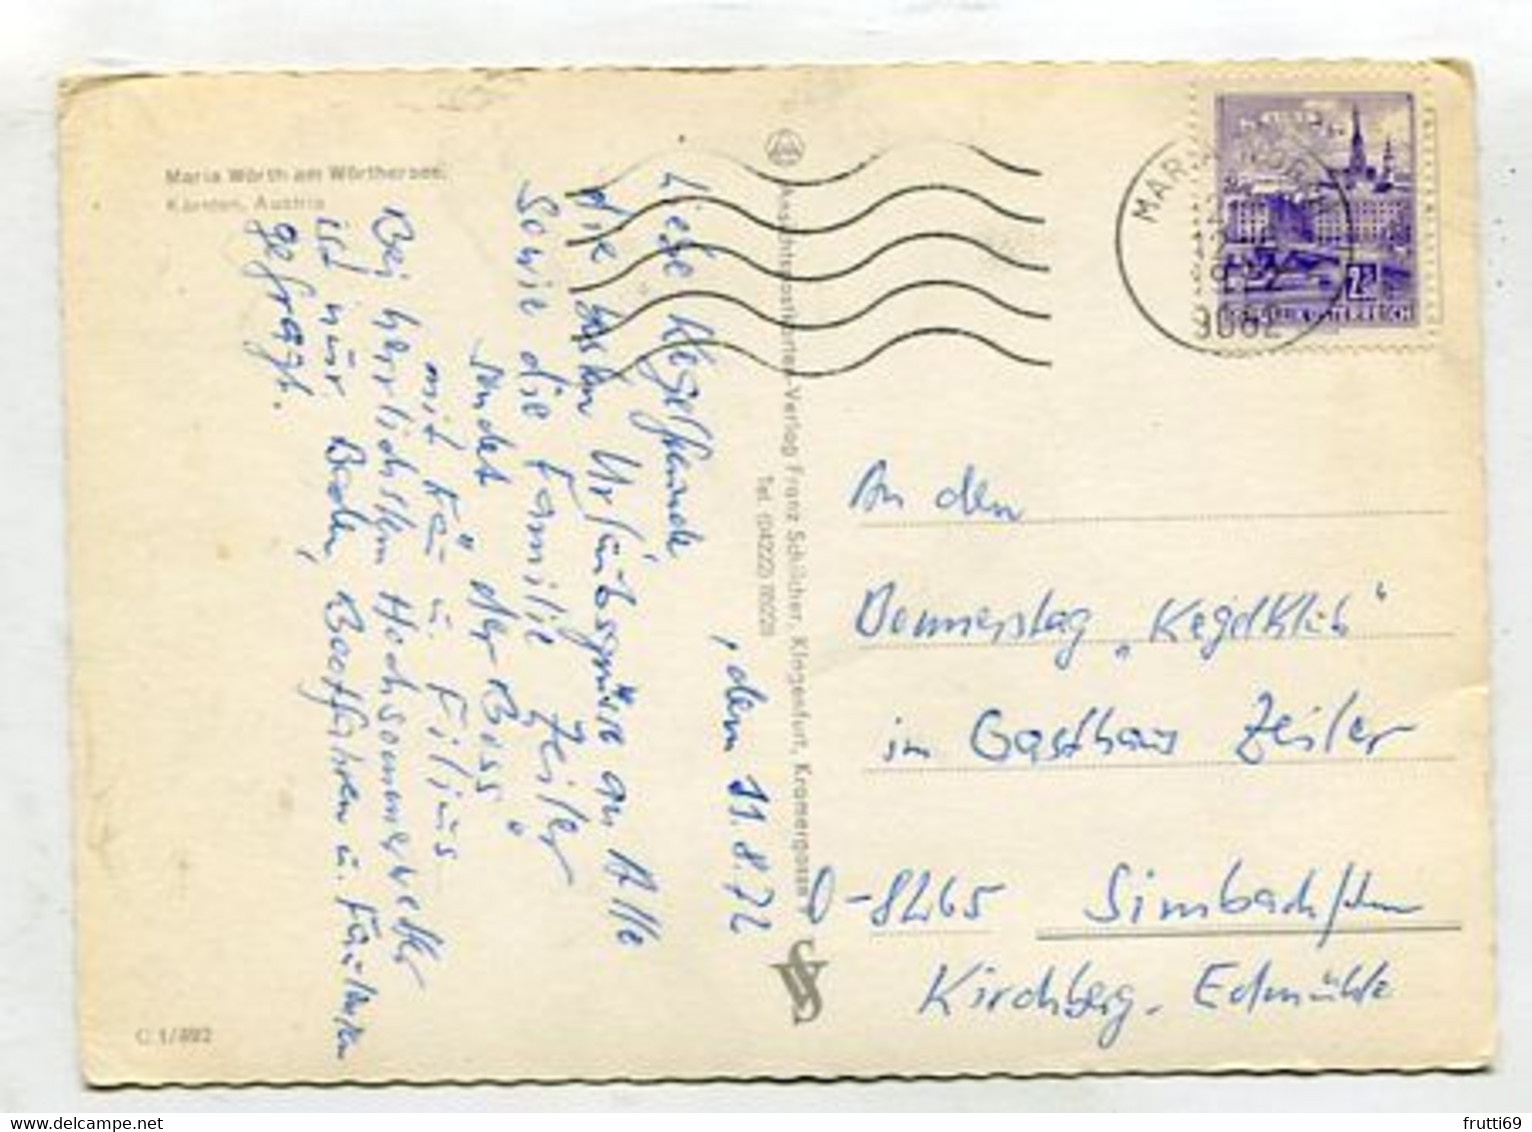 Maria Wörth am Wörthersee,
Kärnten, Austria
, dem 11.8.72
Liebe Kegelfreunde
die besten Urlaubsgrüsse an Alle
sowie die Familie Zeiler
sendet "der Boss"
mit Frau u. Filius
Bei herrlichstem Hochsommerwetter
ist nur Baden, Bootfahren u. Faulenzen
gefragt.
Ansichtspostkarten-Verlag Franz Schilcher, Klagenfurt, Kramergasse
Tel. (04222)
C 1/892
MARIA WÖRTH
9082
REPUBLIK ÖSTERREICH
An den
Donnerstag „Kegelklub"
im Gasthaus Zeiler
D-8265 Simbach/Inn
Kirchberg - Edmühle
frutti69